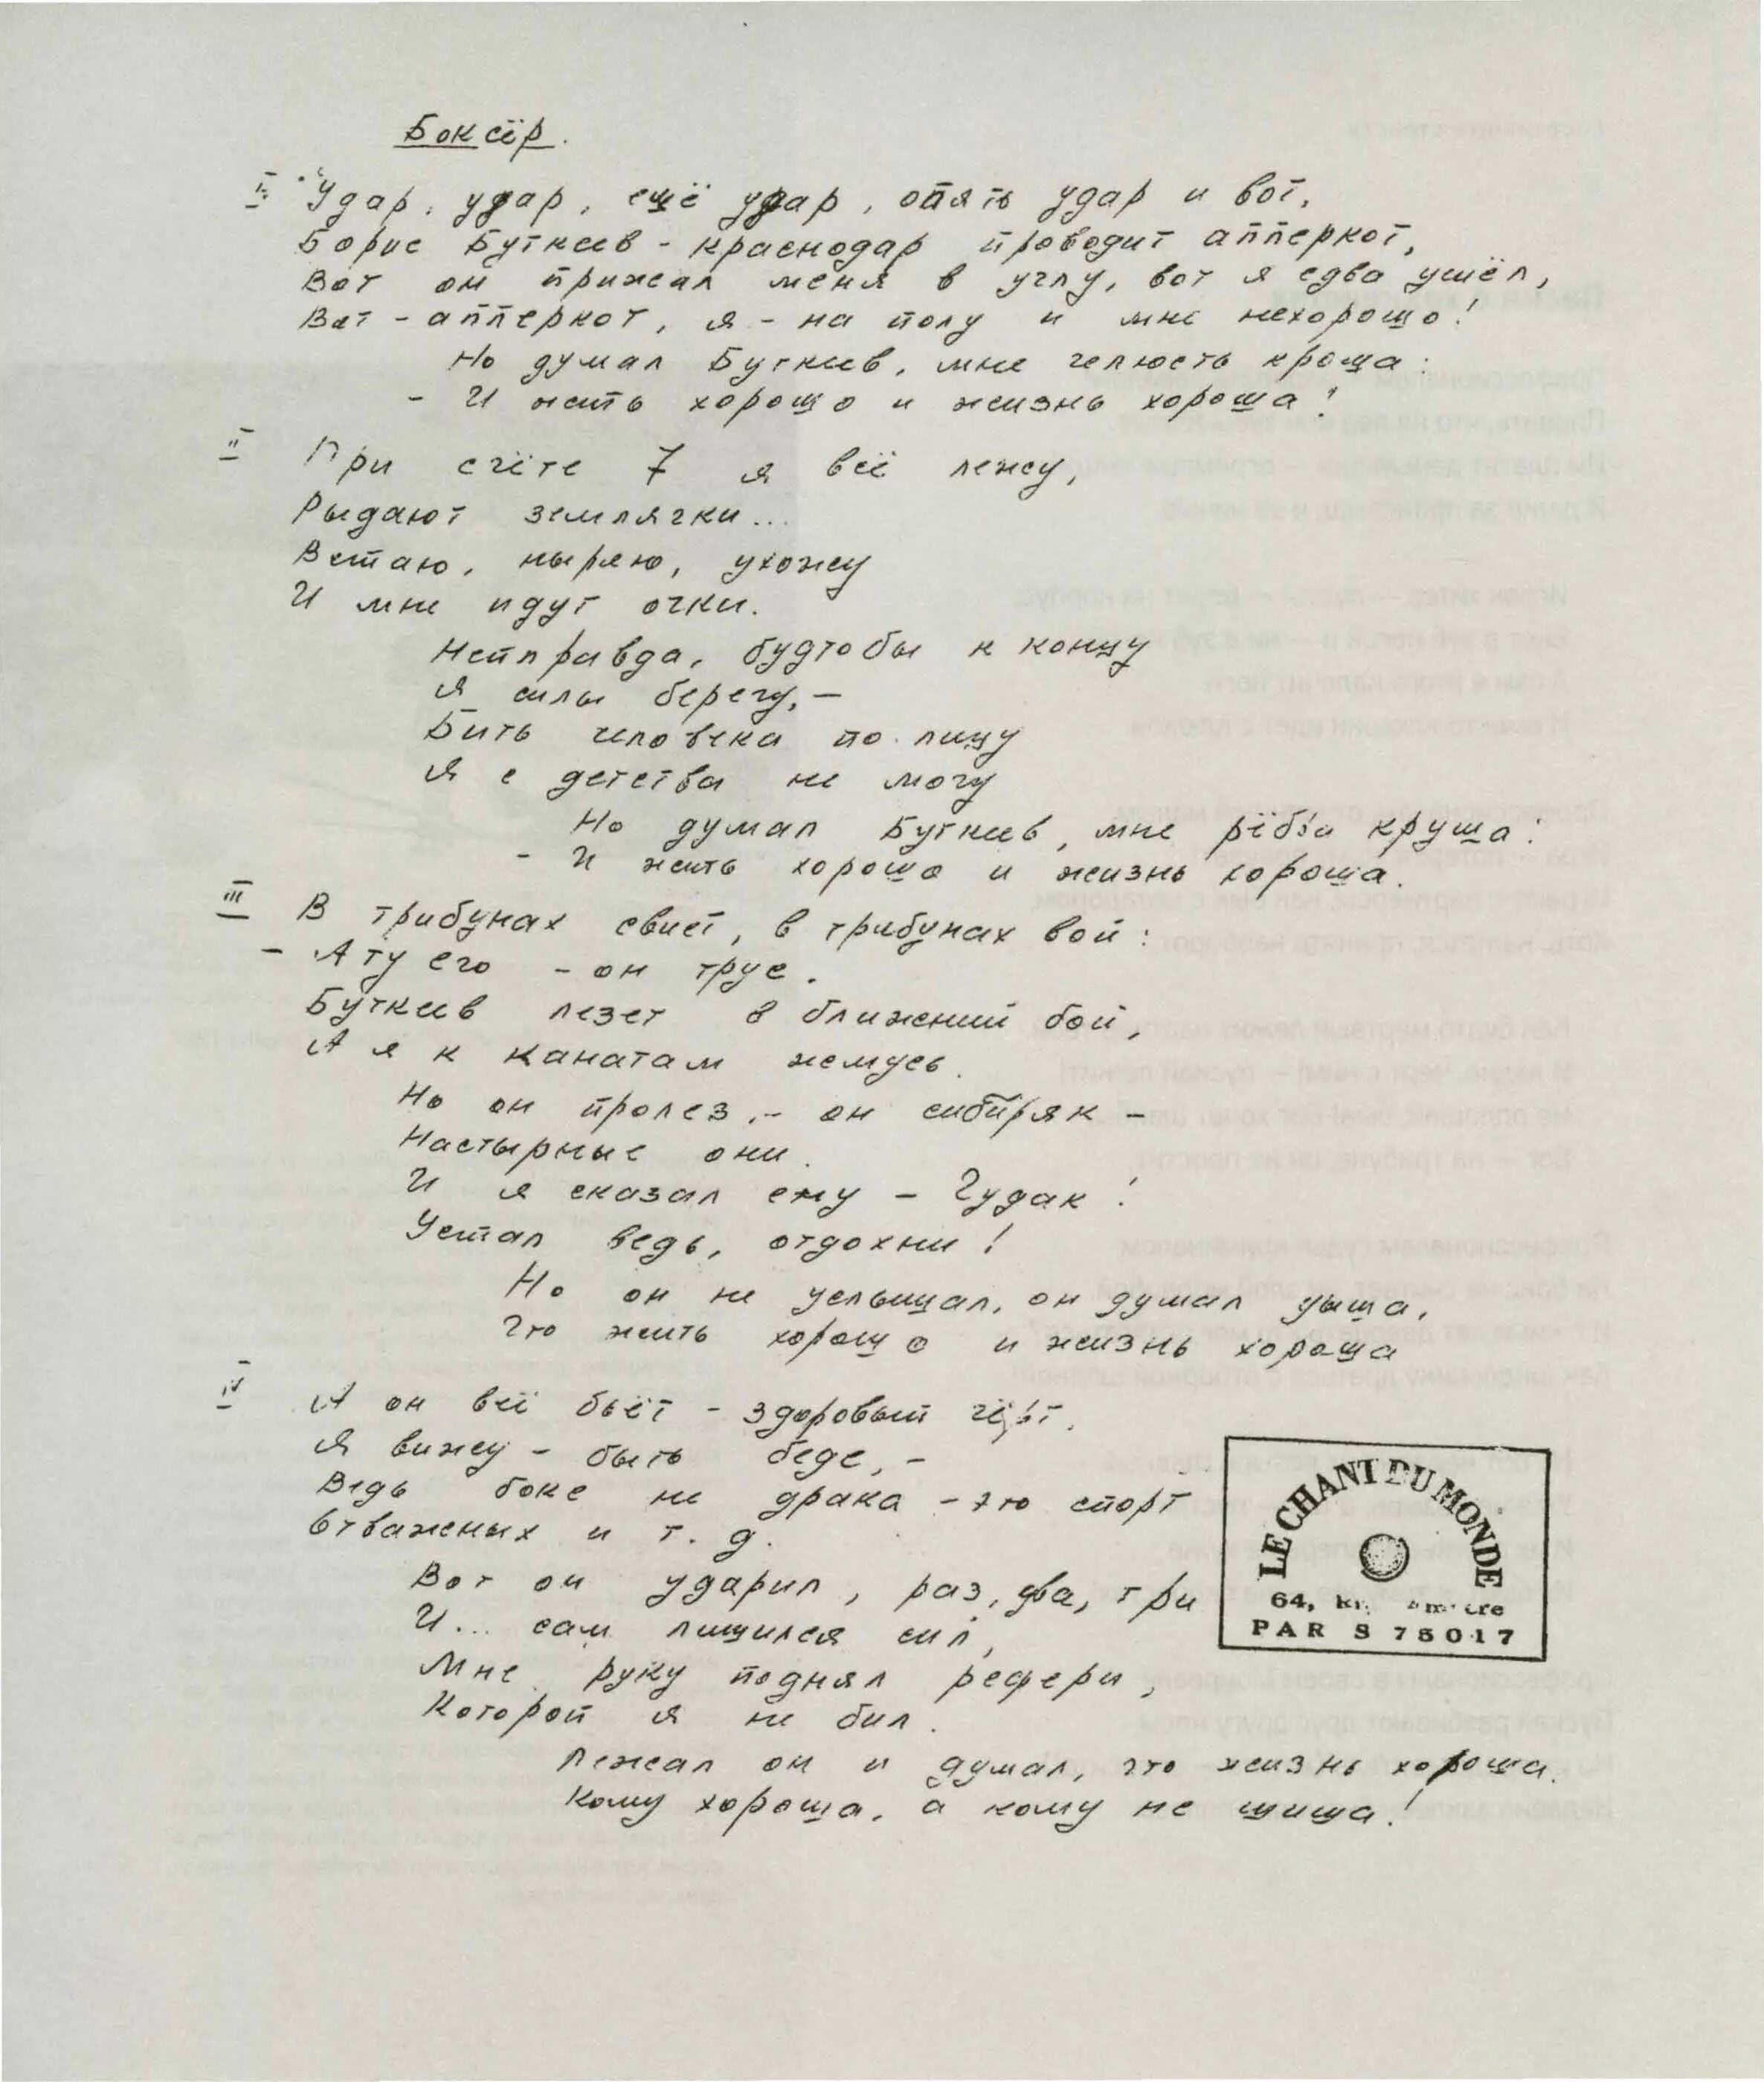 Боксёр.
I. Удар, удар, ещё удар, опять удар и вот,
Борис Буткеев - краснодар проводит апперкот,
Вот он прижал меня в углу, вот я едва ушёл,
Вот - апперкот, я - на полу и мне нехорошо!
Но думал Буткеев, мне челюсть кроша:
- И жить хорошо и жизнь хороша!
II При счёте 7 я всё лежу,
Рыдают землячки...
Встаю, ныряю, ухожу
И мне идут очки.
Неправда, будтобы к концу
Я силы берегу, -
Бить человека по лицу
Я с детства не могу
Но думал Буткеев, мне рёбра круша:
- И жить хорошо и жизнь хороша.
III В трибунах свист, в трибунах вой:
- Ату его - он трус.
Буткеев лезет в ближний бой,
А я к канатам жмусь.
Но он пролез, - он сибиряк -
Настырные они.
И я сказал ему - Чудак!
Устал ведь, отдохни!
Но он не услышал, он думал дыша,
Что жить хорошо и жизнь хороша
IV А он всё бьёт - здоровый чёрт.
Я вижу - быть беде, -
Ведь бокс не драка - это спорт
Отважных и т. д.
Вот он ударил, раз, два, три
И... сам лишился сил,
Мне руку поднял рефери,
Которой я не бил.
Лежал он и думал, что жизнь хороша.
Кому хороша, а кому не шиша!
LE CHANT DU MONDE
64,
PAR S 75017